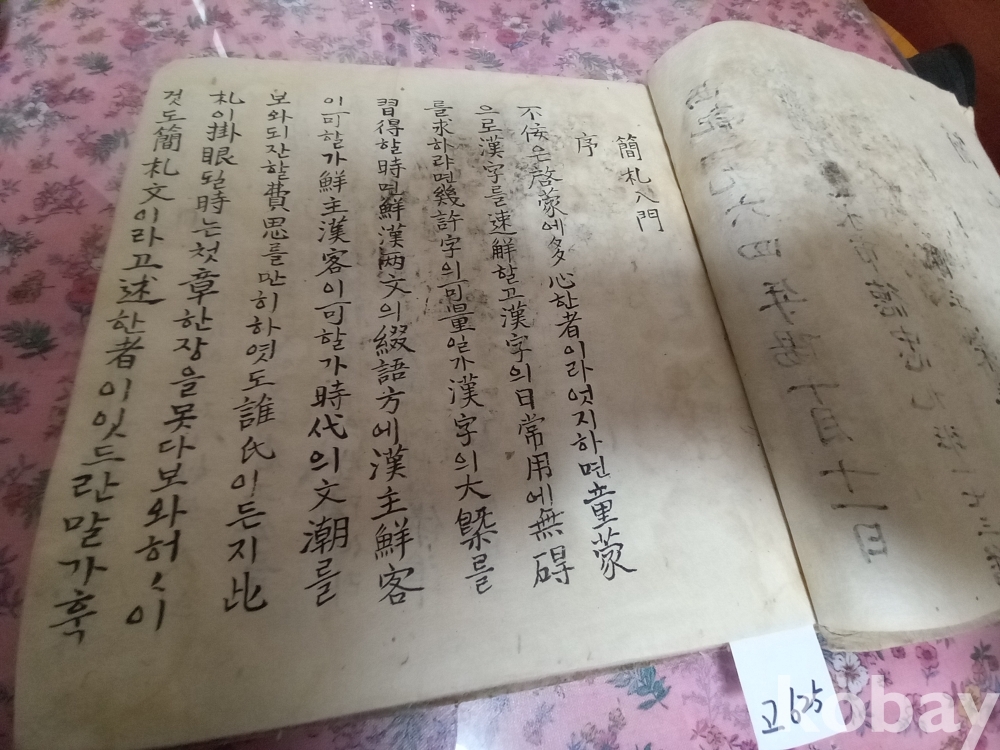 簡札入門
序
不佞은啓蒙에多心한者이라엇지하면童蒙
으로漢字를速解할고漢字의日常用에無碍
를求하랴면幾許字의可量일가漢字의大槩를
習得할時면鮮漢兩文의綴語方에漢主鮮客
이可할가鮮主漢客이可할가時代의文潮를
보와되잔할費思를만히하엿도誰氏이든지此
札이掛眼될時는첫章한장을못다보와허々이
것도簡札文이라고述한者이잇드란말가훅
고625
kobay